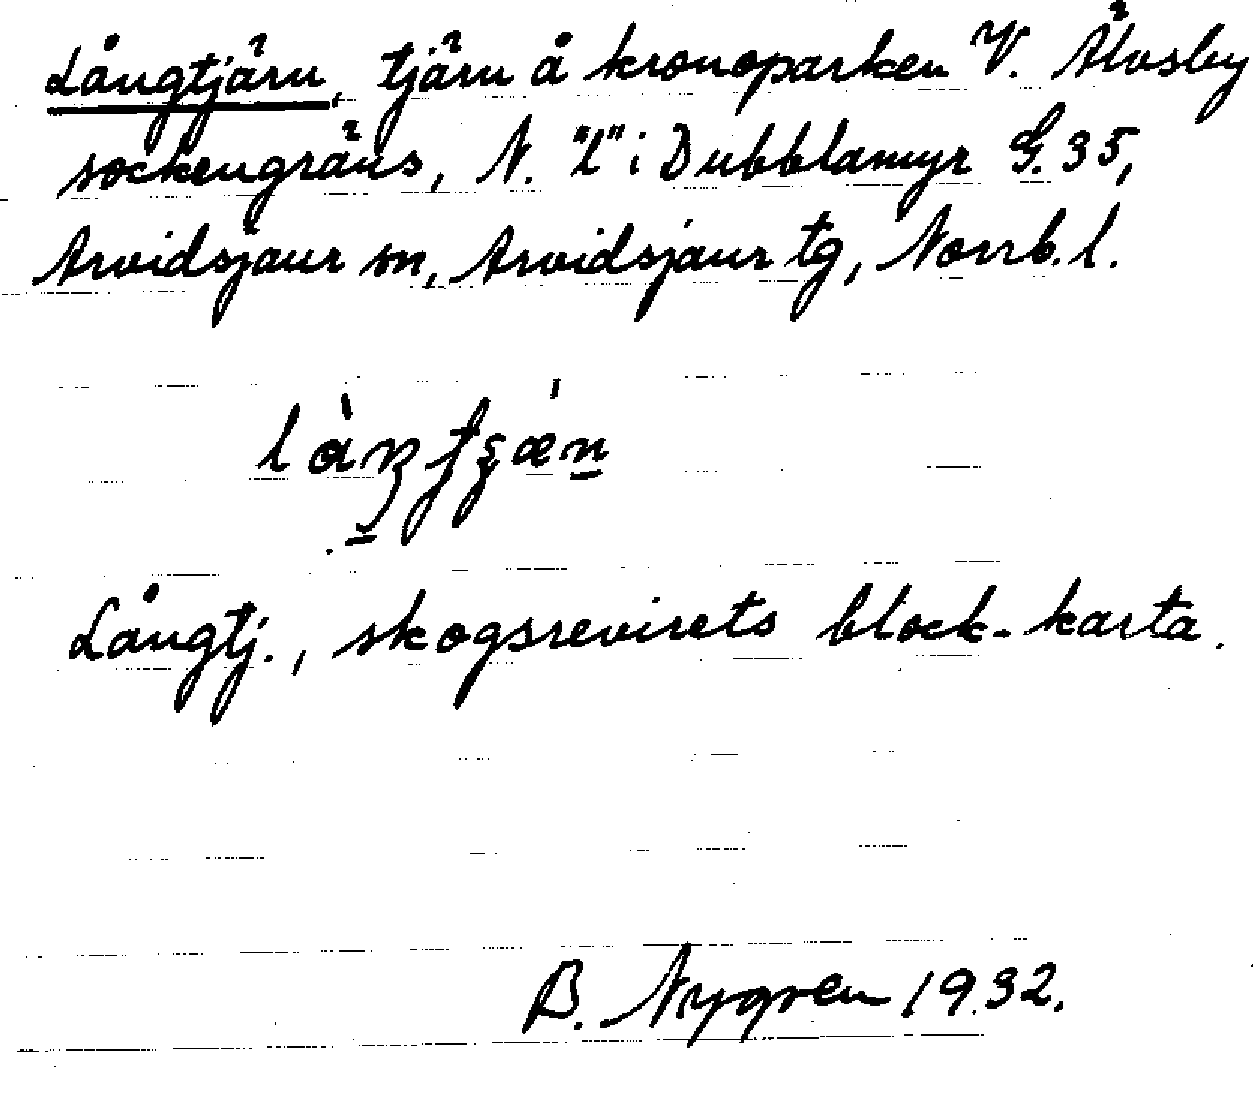 Långtjärn, tjärn å kronoparken V. Älvsby
sockengräns, N. "l" i Dubblamyr G. 35,
Arvidsjaur sn, Arvidsjaur tg, Norrb. l.
Långtj., skogsrevirets block-karta.
B. Nygren 1932.